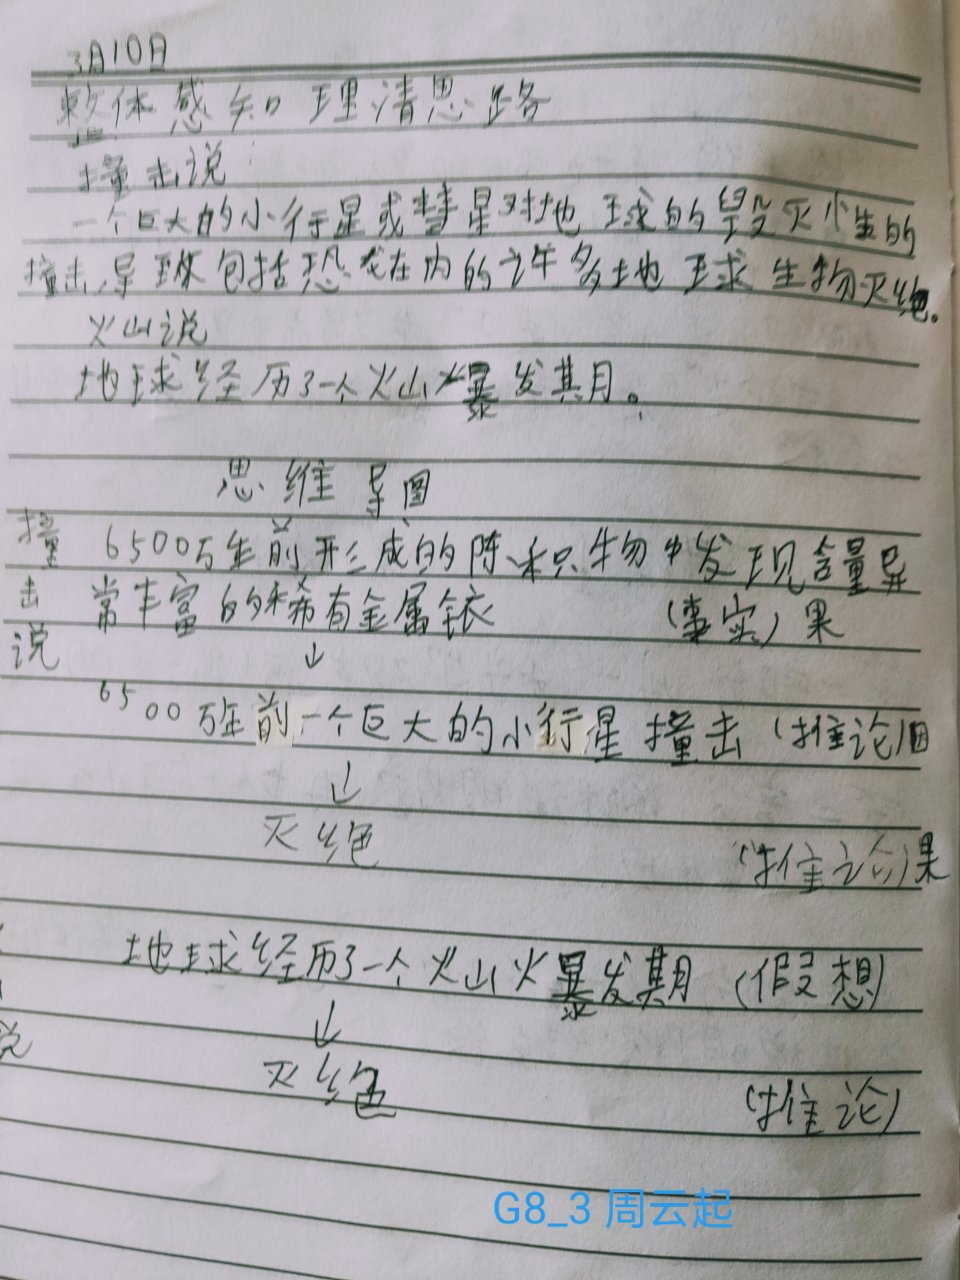 3月10日
整体感知 理清思路
撞击说
一个巨大的小行星或彗星对地球的毁灭性的
撞击,导致包括恐龙在内的许多地球生物灭绝。
火山说
地球经历了一个火山爆发其月。
思维导图
撞击说
6500万年前形成的陈积物中发现含量异
常丰富的稀有金属铱 (事实)果
↓
6500万年前一个巨大的小行星撞击 (推论)因
↓
灭绝 (推论)果
地球经历了一个火山火暴发期 (假想)
说
↓
灭绝 (推论)
G8_3 周云起